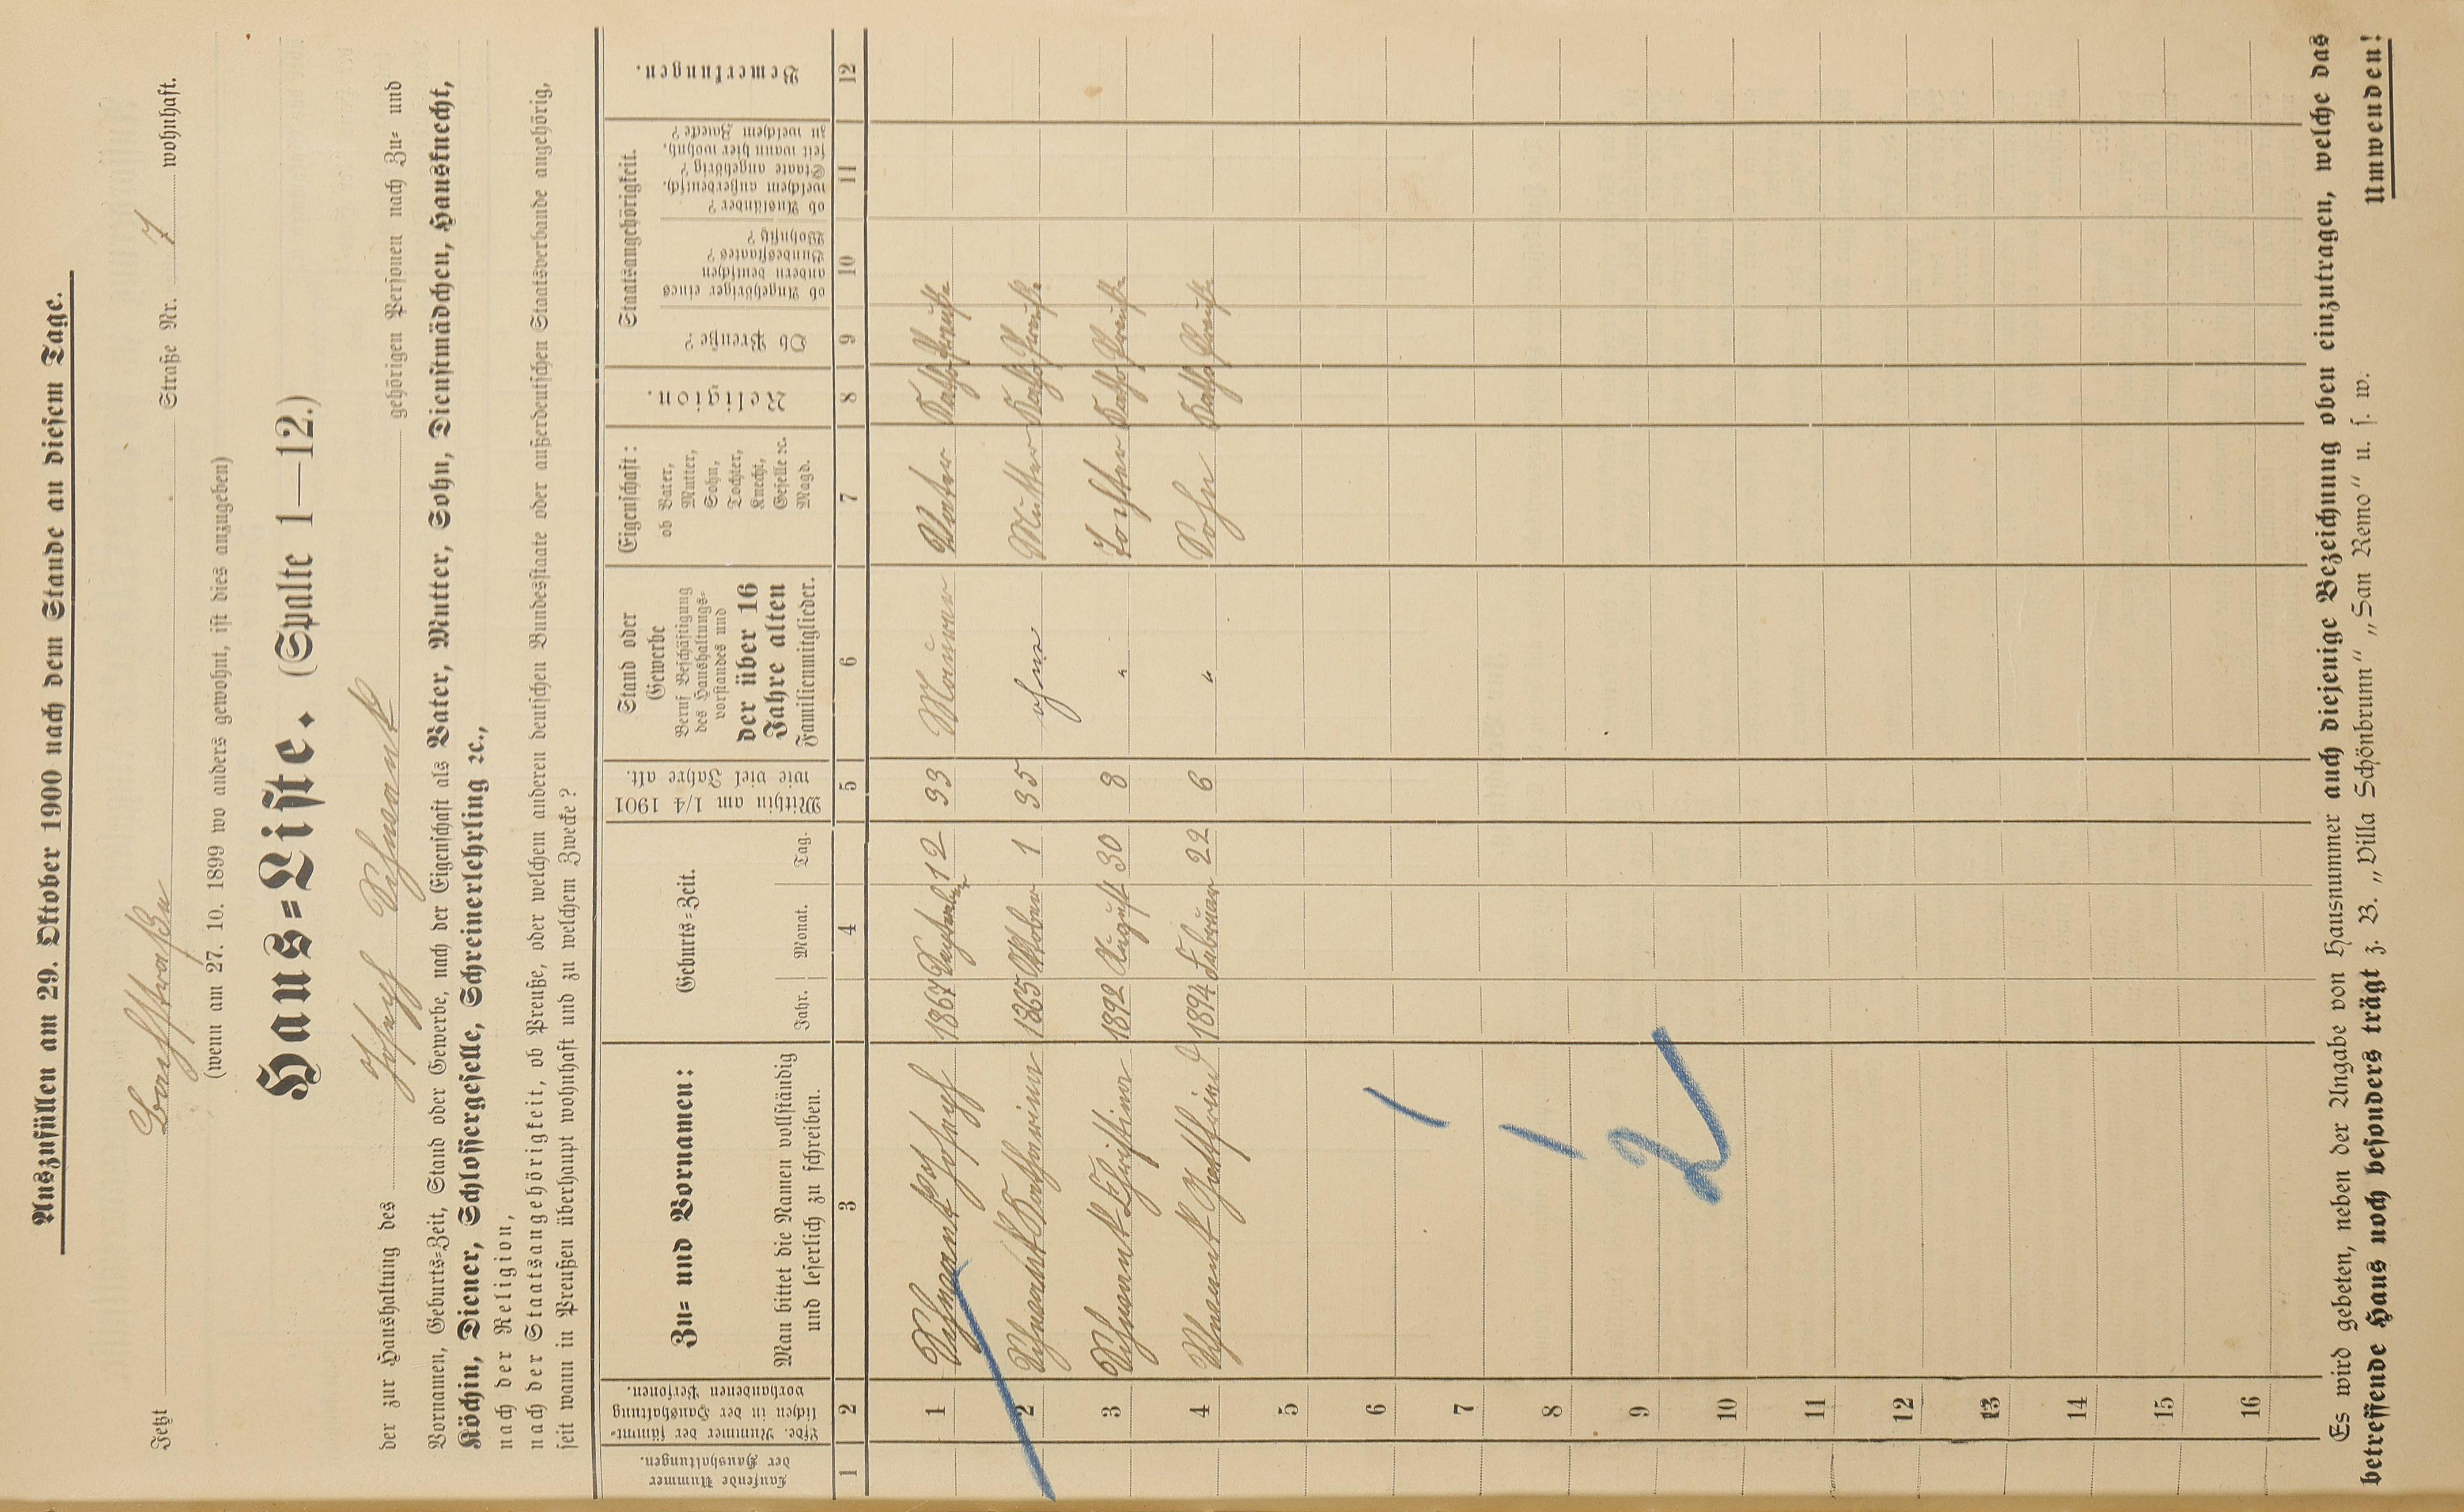 Auszufüllen am 29. Oktober 1900 nach dem Stande an diesem Tage.
Jetzt Bachstraße Straße Nr. 7 wohnhaft.
(wenn am 27. 10. 1899 wo anders gewohnt, ist dies anzugeben)
Haus=Liste. (Spalte 1—12.)
der zur Haushaltung des Joseph Schmank gehörigen Personen nach Zu= und
Vornamen, Geburts=Zeit, Stand oder Gewerbe, nach der Eigenschaft als Vater, Mutter, Sohn, Dienstmädchen, Hausknecht,
Köchin, Diener, Schlossergeselle, Schreinerlehrling ꝛc.,
nach der Religion,
nach der Staatsangehörigkeit, ob Preuße, oder welchem anderen deutschen Bundesstaate oder außerdeutschen Staatsverbande angehörig,
seit wann in Preußen überhaupt wohnhaft und zu welchem Zwecke?
Laufende Nummer
der Haushaltungen.
Lfde. Nummer der sämmt=
lichen in der Haushaltung
vorhandenen Personen.
Zu= und Vornamen:
Man bittet die Namen vollständig
und leserlich zu schreiben.
Geburts=Zeit.
Jahr. Monat. Tag.
Mithin am 1/4 1901
wie viel Jahre alt.
Stand oder
Gewerbe
Beruf Beschäftigung
des Haushaltungs=
vorstandes und
der über 16
Jahre alten
Familienmitglieder.
Eigenschaft:
ob Vater,
Mutter,
Sohn,
Tochter,
Knecht,
Geselle ꝛc.
Magd.
Religion.
Staatsangehörigkeit.
Ob Preuße?
ob Angehöriger eines
andern deutschen
Bundesstaates?
Wohnsitz?
ob Ausländer?
welchem außerdeutsch.
Staate angehörig?
seit wann hier wohnh.
zu welchem Zwecke?
Bemerkungen.
1 2 3 4 5 6 7 8 9 10 11 12
1 Schmank Joseph 1867 Dezember 12 33 Maurer Vater Kath. Preuße
2 Schmank Katharina 1865 Oktober 1 35 ohne Mutter Kath. Preuße
3 Schmank Christina 1892 August 30 8 " Tochter Kath. Preuße
4 Schmank Gottfried 1894 Februar 22 6 " Sohn Kath. Preuße
5
6
7
8
9
10
11
12
13
14
15
16
1
1
2
Es wird gebeten, neben der Angabe von Hausnummer auch diejenige Bezeichnung oben einzutragen, welche das
betreffende Haus noch besonders trägt z. B. „Villa Schönbrunn" „San Remo" u. s. w.
Umwenden!